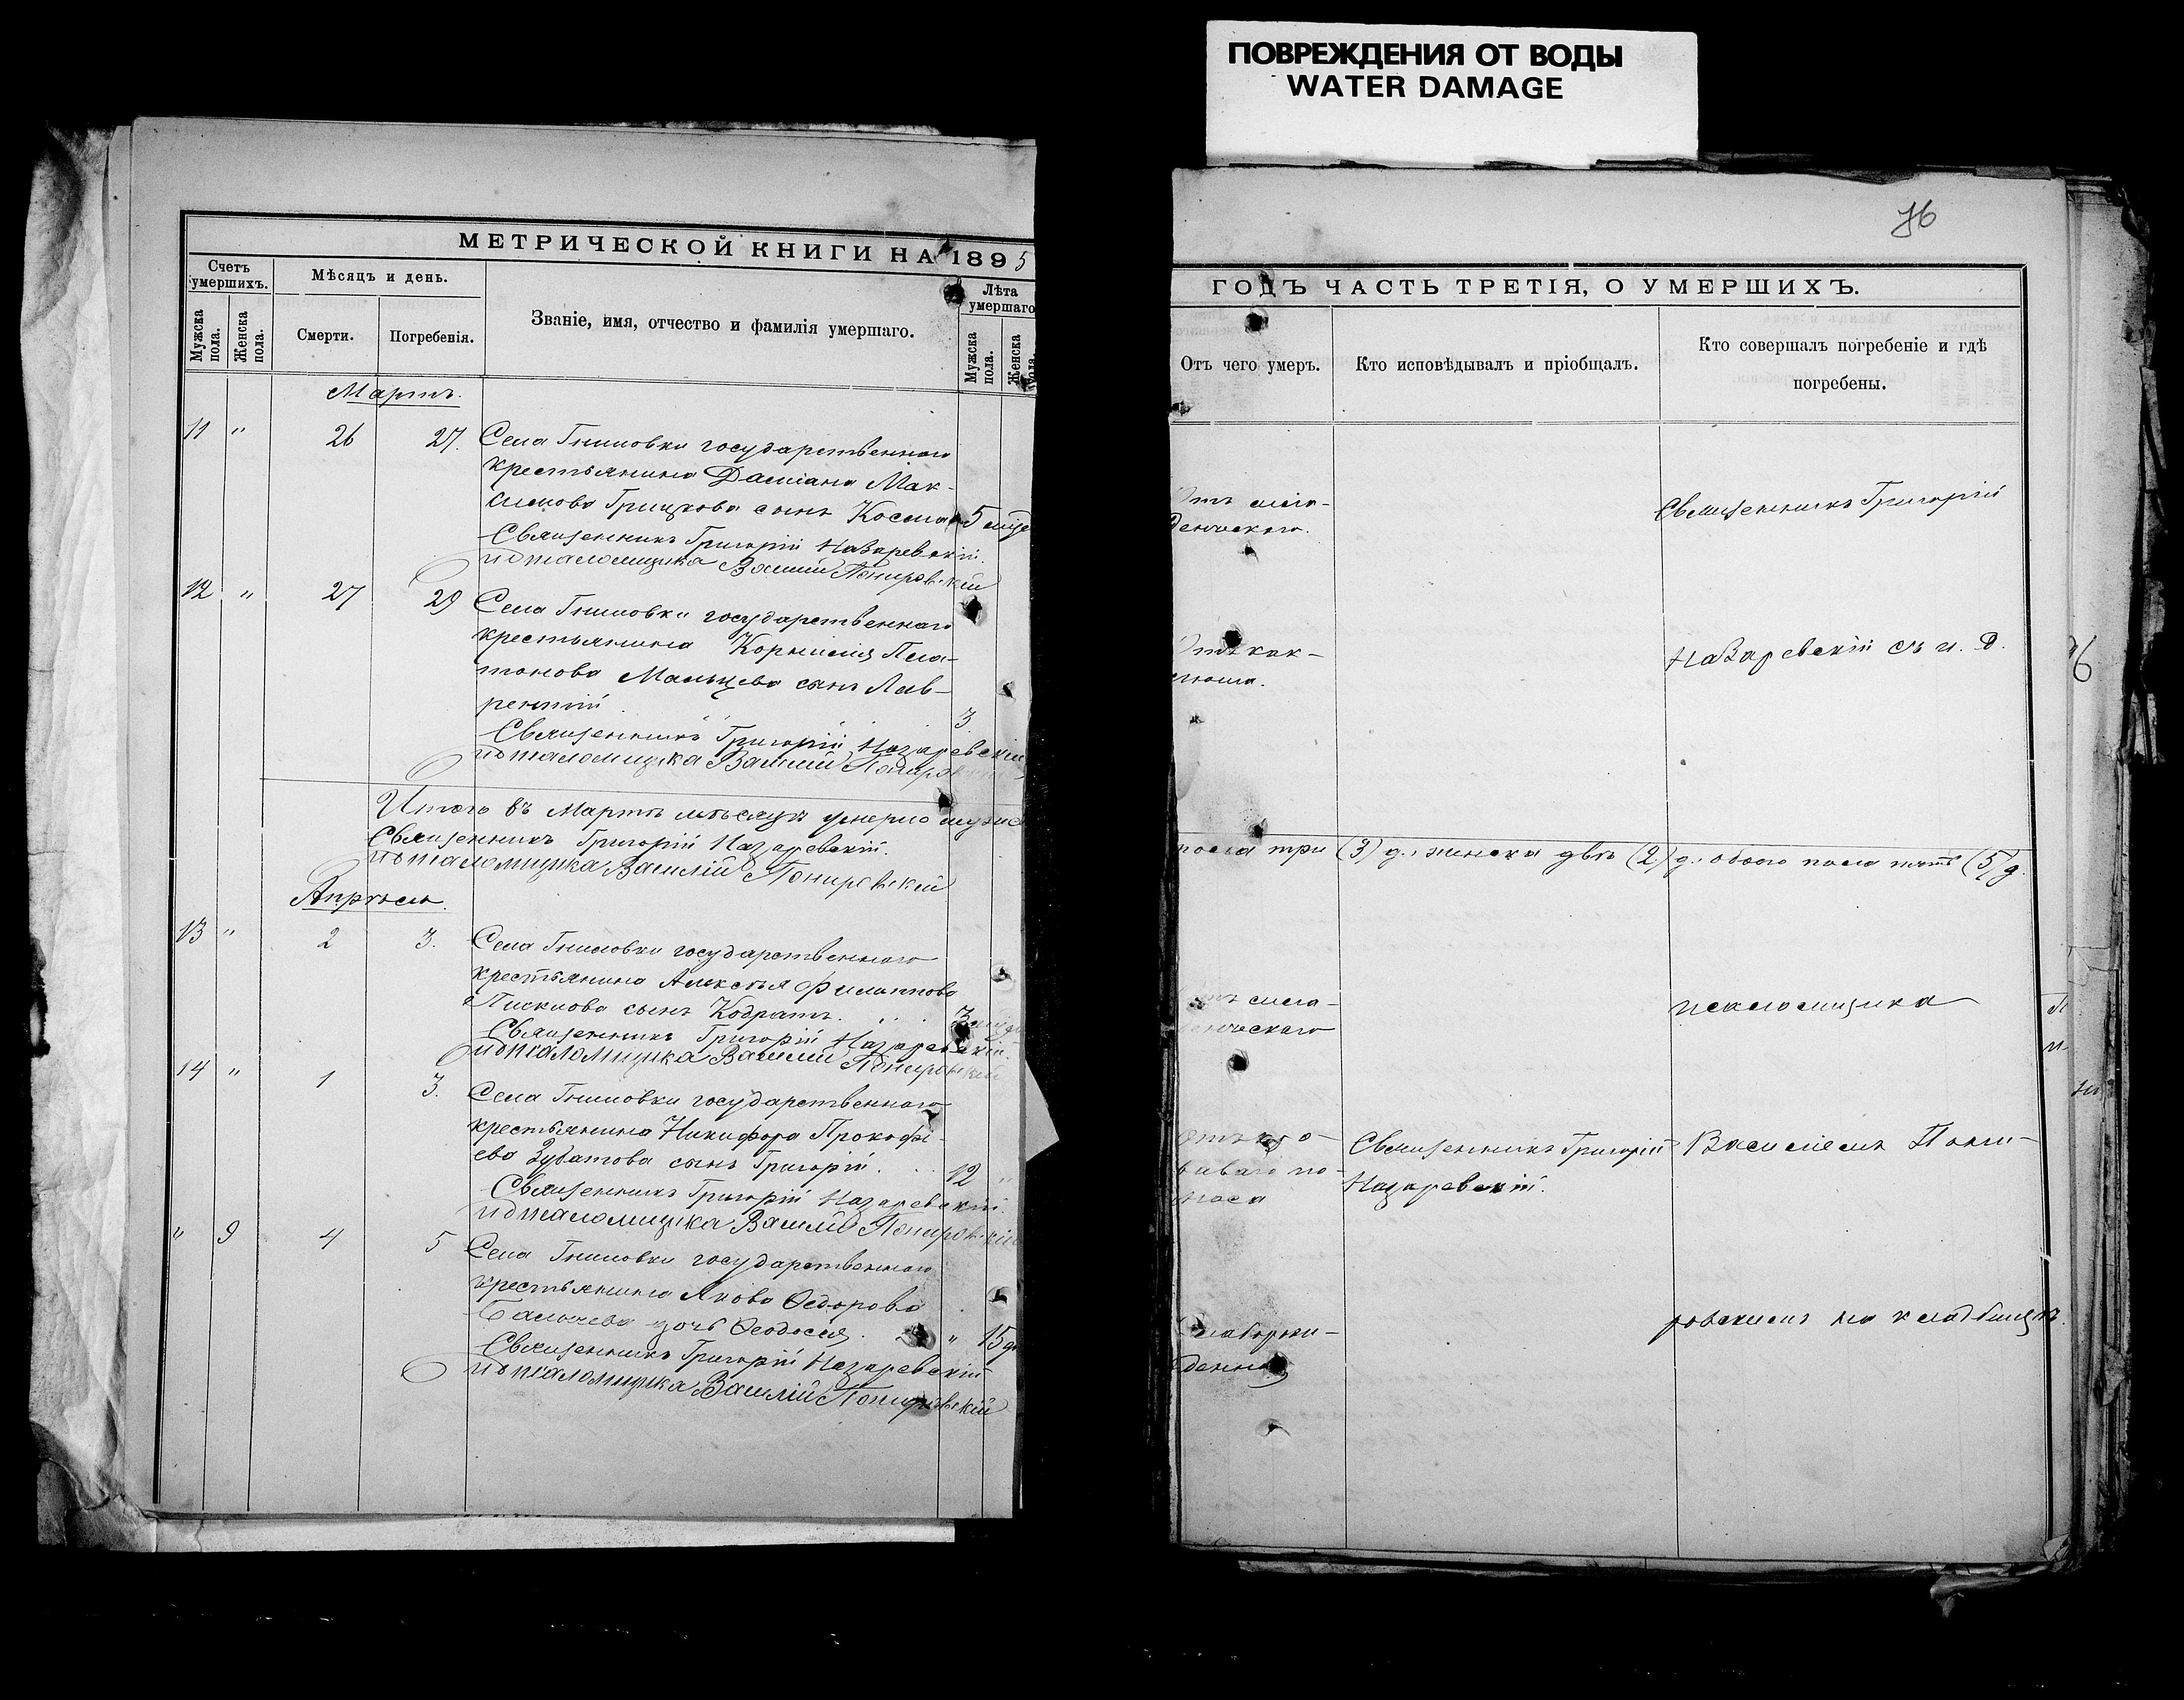 ПОВРЕЖДЕНИЯ ОТ ВОДЫ
WATER DAMAGE
МЕТРИЧЕСКОЙ КНИГИ НА 1895
Счетъ умершихъ.
Мужска пола.
Женска пола.
Мѣсяцъ и день.
Смерти.
Погребенія.
Званіе, имя, отчество и фамилія умершаго.
Лѣта умершаго
Мужска пола.
Женска пола.
Мартъ.
11 " 26 27. Села Гниловки государственнаго
крестьянина Даміана Мак-
симова Грицкова сынъ Косма 5
Священникъ Григорій Назаревскій.
И д псаломщика Василій
12 " 27 29 Села Гниловки государственнаго
крестьянина Корнилія Пла-
тонова Мальцева сынъ Лав-
рентій 3
Священникъ Григорій Назаревскій
И д псаломщика Василій
Итого въ Мартѣ мѣсяцѣ умерло
Священникъ Григорій Назаревскій.
И д псаломщика Василій
Апрѣль.
13 " 2 3. Села Гниловки государственнаго
крестьянина Алексѣя Филиппова
сынъ Кодратъ. 3
Священникъ Григорій Назаревскій.
И д псаломщика Василій
14 " 1 3. Села Гниловки государственнаго
крестьянина Никифора Прокофі-
ева Зубатова сынъ Григорій. 12 "
Священникъ Григорій Назаревскій.
И д псаломщика Василій
" 9 4 5 Села Гниловки государственнаго
крестьянина Якова Ѳедорова
дочь Ѳеодосія. " 15
Священникъ Григорій Назаревскій
И д псаломщика Василій
76
ГОДЪ ЧАСТЬ ТРЕТІЯ, О УМЕРШИХЪ.
Отъ чего умеръ.
Кто исповѣдывалъ и пріобщалъ.
Кто совершалъ погребеніе и гдѣ
погребены.
Отъ мла-
денческаго.
Священникъ Григорій
Назаревскій съ и. д.
пола три (3) д., женска двѣ (2) д., обоего пола пять (5) д.
псаломщика
Священникъ Григорій
Назаревскій.
на кладбищѣ.